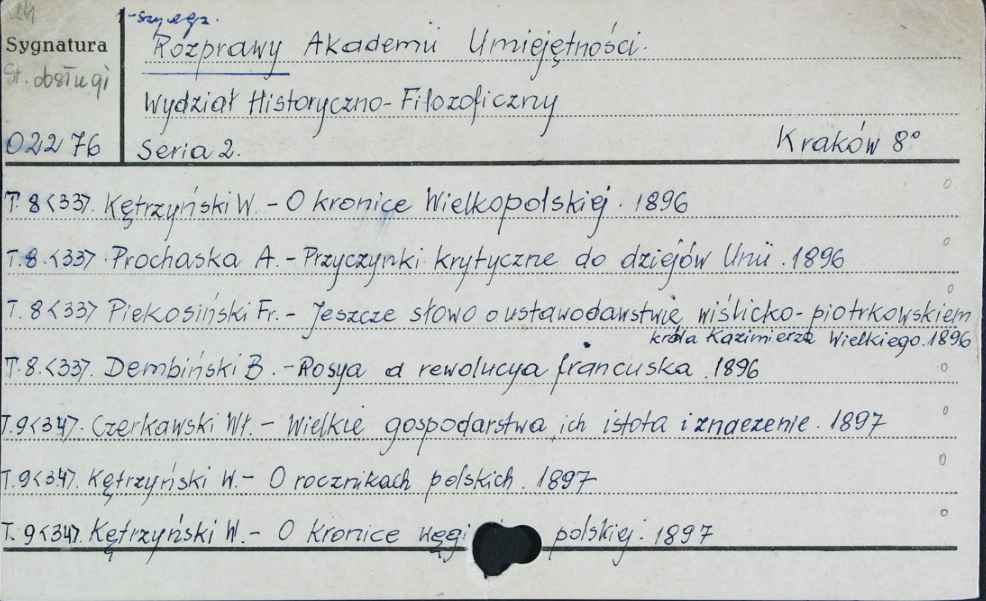 1-szy egz.
Sygnatura
Rozprawy Akademii Umiejętności.
St. obsługi
Wydział Historyczno-Filozoficzny
02276
Seria 2.
Kraków 8°
T. 8<33>. Kętrzyński W. - O kronice Wielkopolskiej. 1896
T. 8.<33> Prochaska A. - Przyczynki krytyczne do dziejów Unii. 1896
T. 8<33> Piekosiński Fr. - Jeszcze słowo o ustawodawstwie wiślicko-piotrkowskiem
króla Kazimierza Wielkiego. 1896
T. 8.<33>. Dembiński B. - Rosya a rewolucya francuska. 1896
T. 9<34>. Czerkawski Wł. - Wielkie gospodarstwa, ich istota i znaczenie. 1897
T. 9<34>. Kętrzyński W. - O rocznikach polskich. 1897
T. 9<34>. Kętrzyński W. - O kronice węgi polskiej. 1897